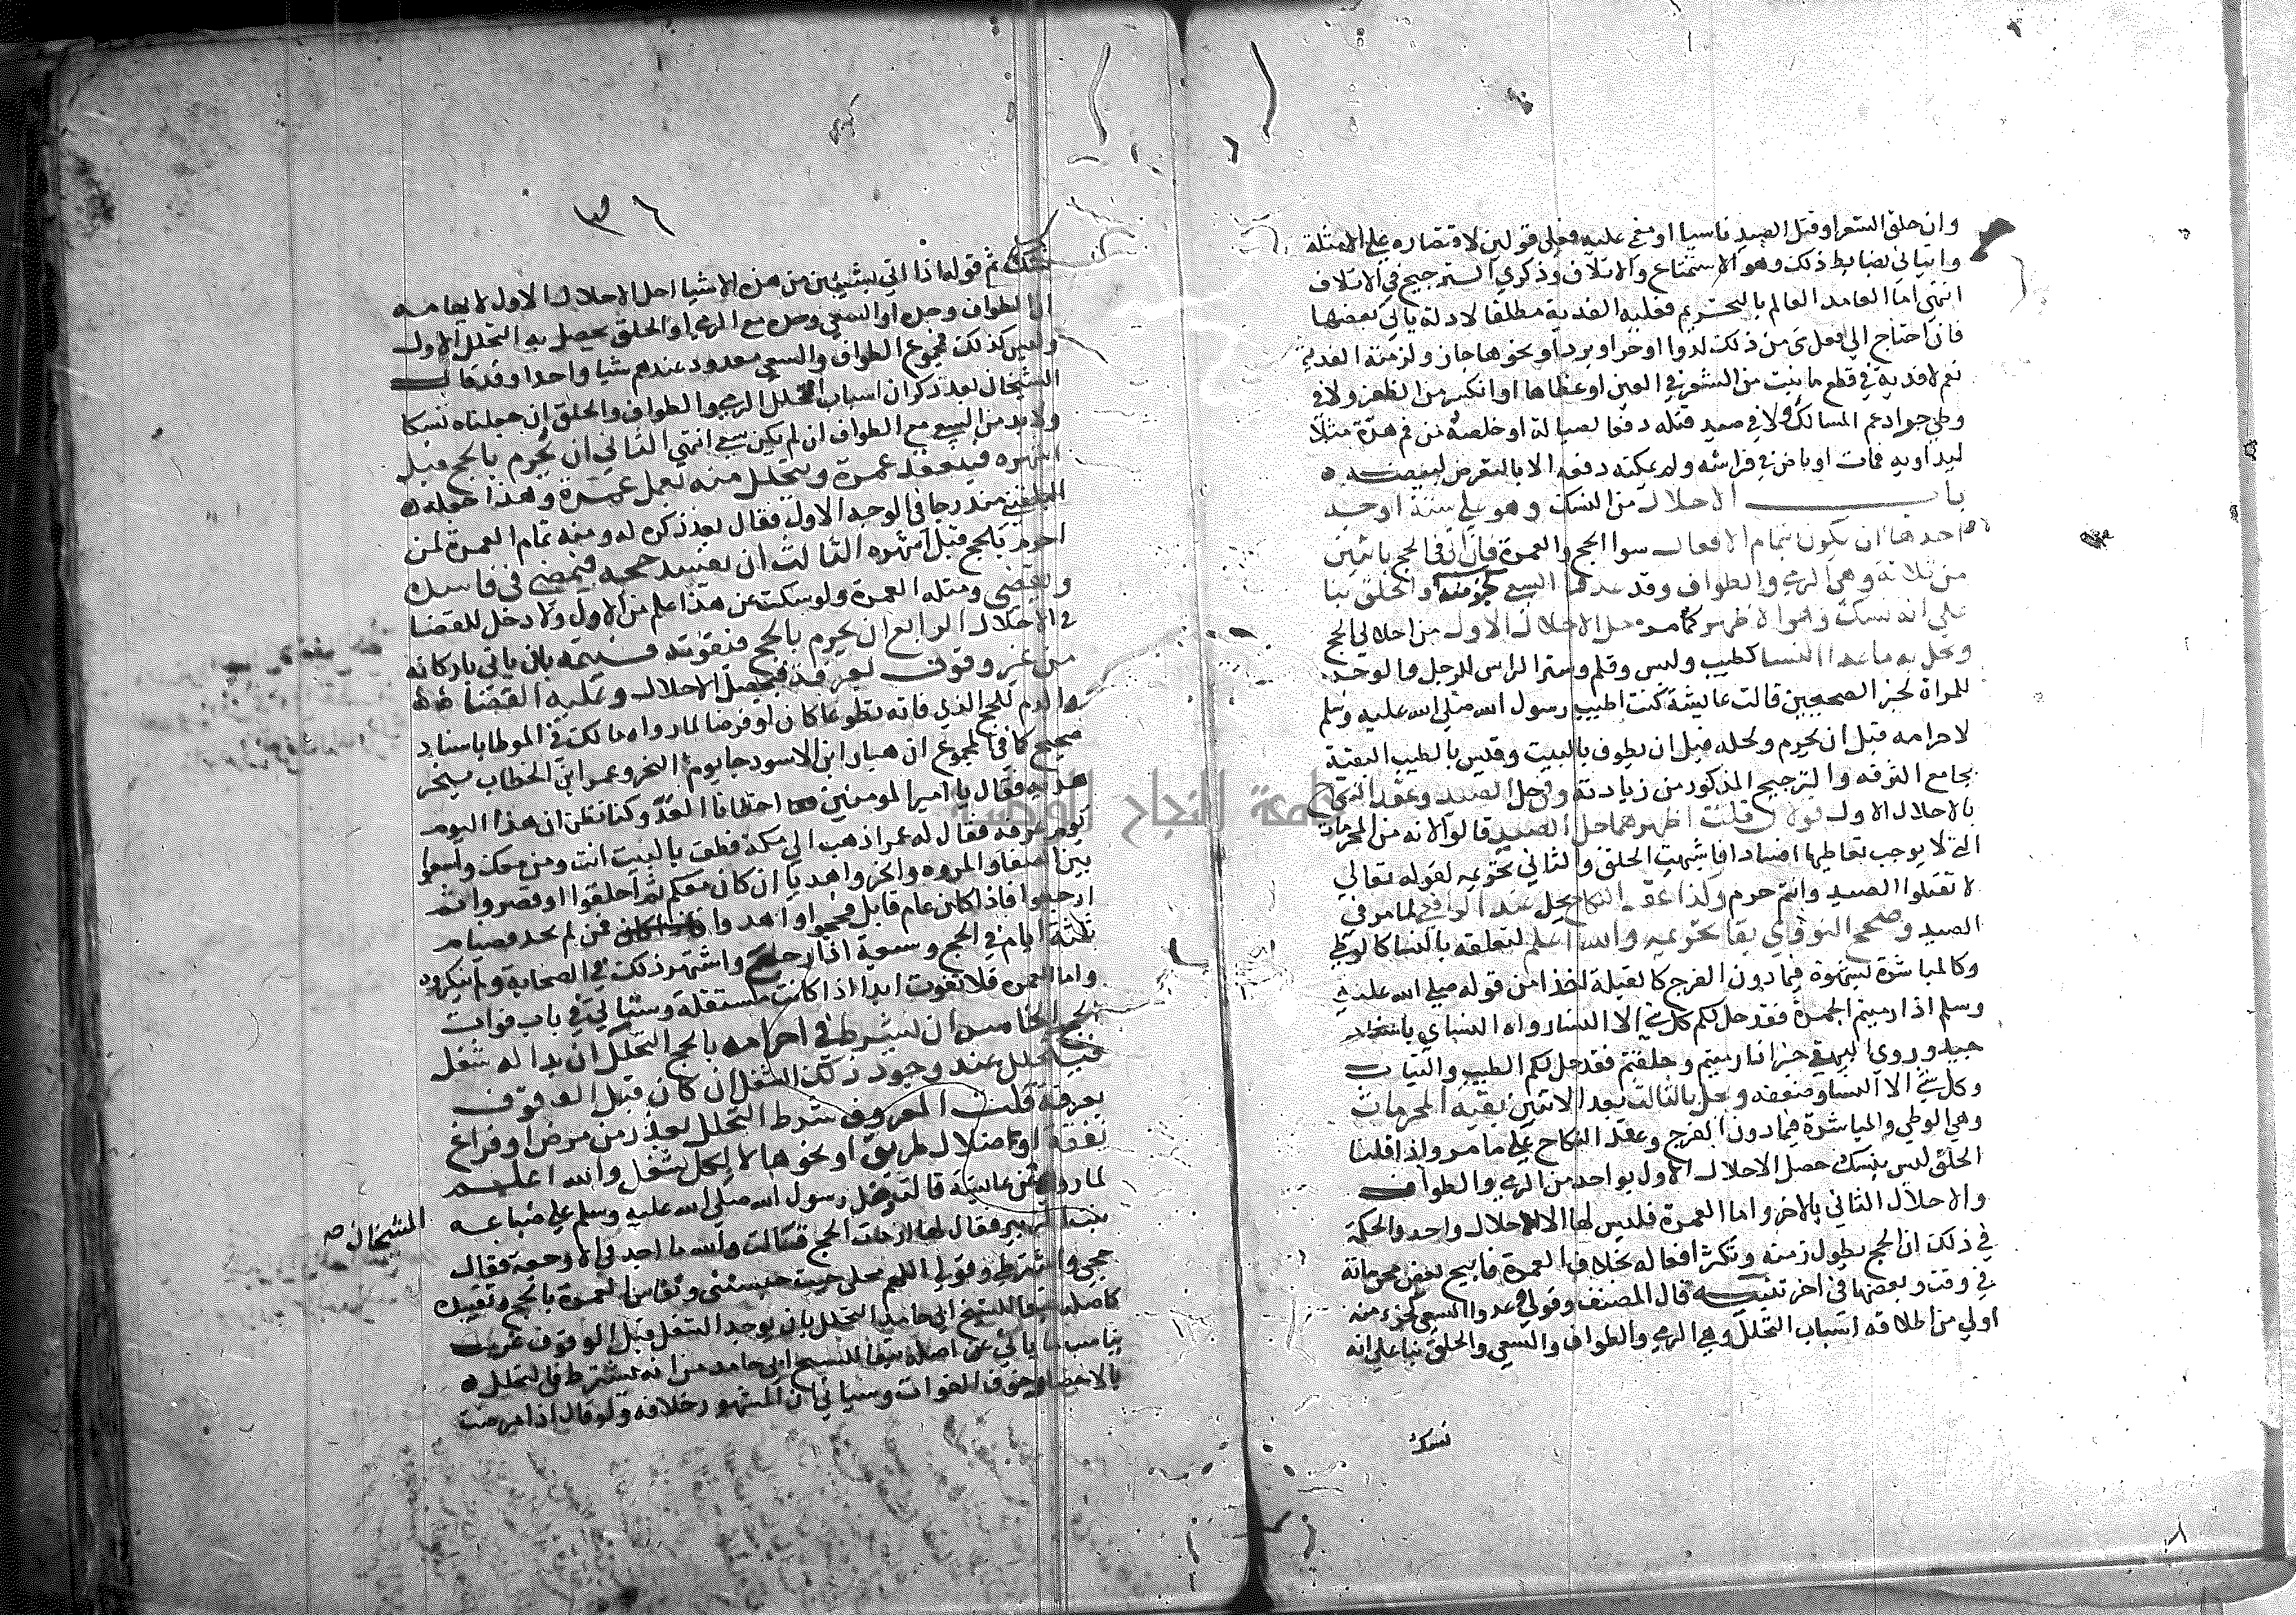 وان حلق الشعر او قتل الصيد ناسيا او مغمي عليه فعلي قولين لاقتصاره علي الامثلة
واتياني بضابط ذلك وهو الاستمتاع والاتلاف وذكري الترجيح في الاتلاف
انتهى اما العامد العالم بالتحريم فعليه الفدية مطلقا لادلة ياتي بعضها
فان احتاج الي فعل شئ من ذلك لدوا او حر او برد او نحوها جاز ولزمته الفدية
نعم لا فدية في قطع ما ينبت من الشعر في العين او غطاها او انكسر من الظفر ولا في
وطي جراد عم المسالك ولا في صيد قتله دفعا لصياله او خلصه من فم هرة مثلا
ليداويه فمات او باض في فراشه ولم يمكنه دفعه الا بالتعرض لبيضه
باب الاحلال من النسك وهو علي ستة اوجه
احدها ان يكون بتمام الافعال سوا الحج والعمرة فان اتي في الحج باثنين
من ثلاثة وهي الرمي والطواف وقد عدوا السعي كجزء منه والحلق بنا
علي انه نسك وهو الاظهر كما مر حل الاحلال الاول من احلالي الحج
وحل به ما عدا النسا كطيب ولبس وقلم وستر الراس للرجل والوجه
للمراة لخبر الصحيحين قالت عايشة كنت اطيب رسول الله صلي الله عليه وسلم
لاحرامه قبل ان يحرم ولحله قبل ان يطوف بالبيت وقيس بالطيب البقية
بجامع الترفه والترجيح المذكور من زيادته وفي حل الصيد وعقد النكاح
بالاحلال الاول قولان قلت اظهرهما حل الصيد قالوا لانه من المحرمات
التي لا يوجب تعاطيها افسادا فاشبهت الحلق والثاني تحريمه لقوله تعالي
لا تقتلوا الصيد وانتم حرم ولذا عقد النكاح يحل عند الرافعي لما مر في
الصيد وصحح النووي بقا تحريمه والله اعلم لتعلقه بالنسا كالوطي
وكالمباشرة بشهوة فيما دون الفرج كالقبلة اخذا من قوله صلي الله عليه
وسلم اذا رميتم الجمرة فقد حل لكم كل شي الا النسا رواه النساي باسناد
جيد وروي البيهقي خبر اذا رميتم وحلقتم فقد حل لكم الطيب والثياب
وكل شي الا النسا وضعفه وحل بالثالث بعد الاثنين بقية المحرمات
وهي الوطي والمباشرة فيما دون الفرج وعقد النكاح علي ما مر واذا قلنا
الحلق ليس بنسك حصل الاحلال الاول بواحد من الرمي والطواف
والاحلال الثاني بالاخر واما العمرة فليس لها الا احلال واحد والحكمة
في ذلك ان الحج يطول زمنه وتكثر افعاله بخلاف العمرة فابيح بعض محرماته
في وقت وبعضها في اخر تنبيه قال المصنف وقولي وعدوا السعي كجزء منه
اولي من اطلاقه اسباب التحلل وهي الرمي والطواف والسعي والحلق بنا علي انه
نسك
٣٦
نسك ثم قوله اذا اتي بشيئين من هذه الاشيا احل الاحلال الاول لايهامه
ان الطواف وحده او السعي وحده مع الرمي او الحلق يحصل به التحلل الاول
وليس كذلك فمجموع الطواف والسعي معدود عندهم شيا واحدا وقد قال
الشيخان بعد ذكر ان اسباب التحلل الرمي والطواف والحلق ان جعلناه نسكا
ولا بد من السعي مع الطواف ان لم يكن سعي انتهي الثاني ان يحرم بالحج قبل
اشهره فينعقد عمرة ويتحلل منه بعمل عمرة وهذا جعله
البلقيني مندرجا في الوجه الاول فقال بعد ذكره له ومنه تمام العمرة لمن
احرم بالحج قبل اشهره الثالث ان يفسد حجه فيمضي في فاسده
ويقضي ومثله العمرة ولو سكت عن هذا علم من الاول ولا دخل للقضا
في الاحلال الرابع ان يحرم بالحج فيفوته فيتمه بان ياتي باركانه
من غير وقوف بعرفة فيحصل الاحلال وعليه القضا
والدم للحج الذي فاته تطوعا كان او فرضا لما رواه مالك في الموطا باسناد
صحيح كما في المجموع ان هبار ابن الاسود جا يوم النحر وعمر ابن الخطاب ينحر
هديه فقال يا امير المومنين اخطانا العد وكنا نظن ان هذا اليوم
يوم عرفة فقال له عمر اذهب الي مكة فطف بالبيت انت ومن معك واسعوا
بين الصفا والمروه وانحروا هديا ان كان معكم ثم احلقوا او قصروا ثم
ارجعوا فاذا كان عام قابل فحجوا واهدوا فمن لم يجد فصيام
ثلثة ايام في الحج وسبعة اذا رجع واشتهر ذلك في الصحابة ولم ينكروه
واما العمره فلا تفوت ابدا اذا كانت مستقلة وسياتي في باب فوات
الحج الخامس ان يشرط في احرامه بالحج التحلل ان بدا له شغل
فيتحلل عند وجود ذلك الشغل ان كان قبل الوقوف
بعرفة قلت المعروف شرط التحلل بعذر من مرض او فراغ
نفقة او ضلال طريق او نحوها لا لكل شغل والله اعلم
لما روي الشيخان عن عايشة قالت دخل رسول الله صلي الله عليه وسلم علي ضباعه
بنت الزبير فقال لها اردت الحج فقالت والله ما اجدني الا وجعة فقال
حجي واشترطي وقولي اللهم محلي حيث حبستني وتقاس العمرة بالحج وتقييد
كاصله تبعا للشيخ ابي حامد التحلل بان يوجد الشغل قبل الوقوف غريب
يناسب ما ياتي عن اصله تبعا للشيخ ابي حامد من انه يشترط في التحلل
بالاحصار خوف الفوات وسياتي ان المشهور خلافه ولو قال اذا مرضت
الشيخان صح
جامعة النجاح الوطنية